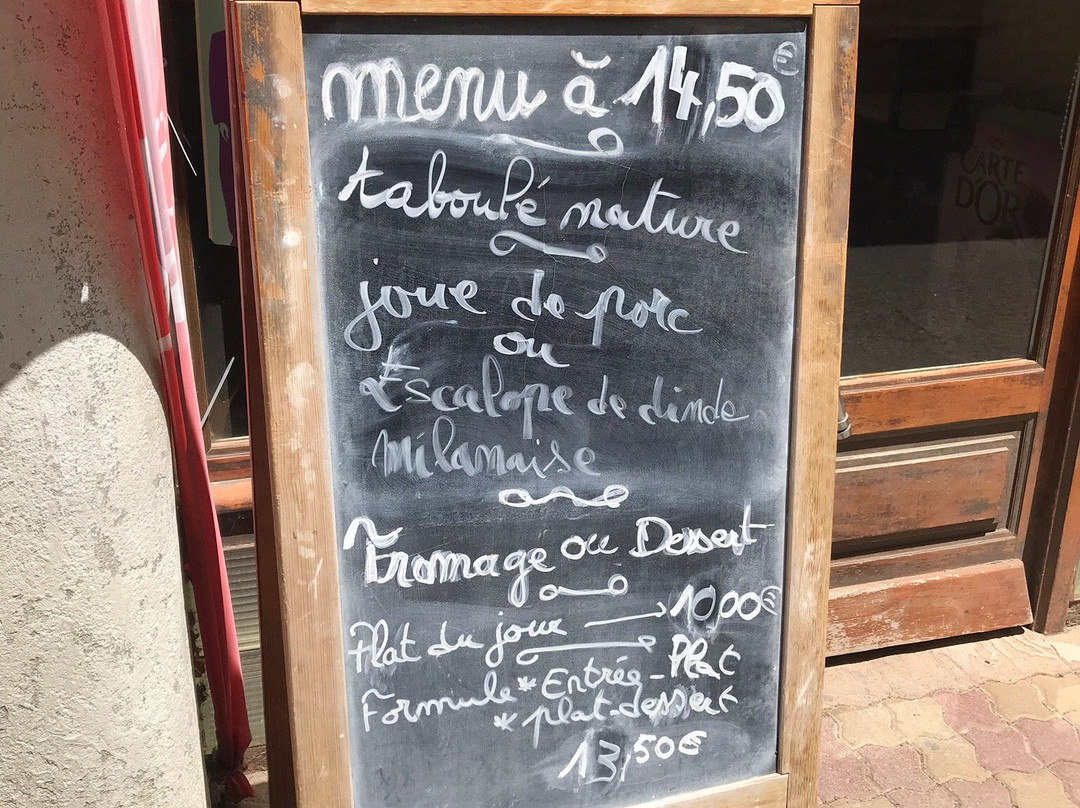 menu à 14,50€
taboulé nature
joue de porc
ou
Escalope de dinde
milanaise
Fromage ou Dessert
Plat du jour → 10,00€
Formule * Entrée-Plat
* plat-dessert
13,50€
CARTE
D'OR